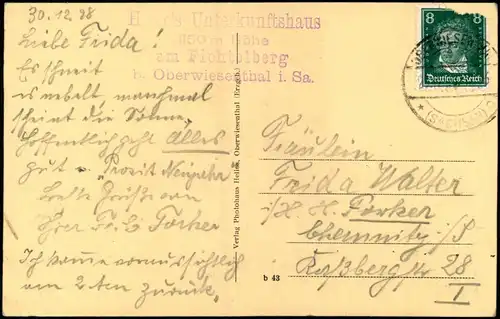 30.12.28
Liebe Frida!
Es schneit
es nebelt, manchmal
scheint die Sonne,
Hoffentlich geht alles
gut u. Prosit Neujahr
Grüße von
Ihrer Porker
Ich komme voraussichtlich
am 2ten zurück.
Unterkunftshaus
Höhe
am Fichtelberg
b. Oberwiesenthal i. Sa.
Verlag Photohaus Heller, Oberwiesenthal (Erzgeb.)
8 8
Deutsches Reich
OBERWIESENTHAL
(SACHSEN)
Fräulein
Frida Walter
i/H. H. Porker
Chemnitz i/S
Roßbergstr 28
I
b 43